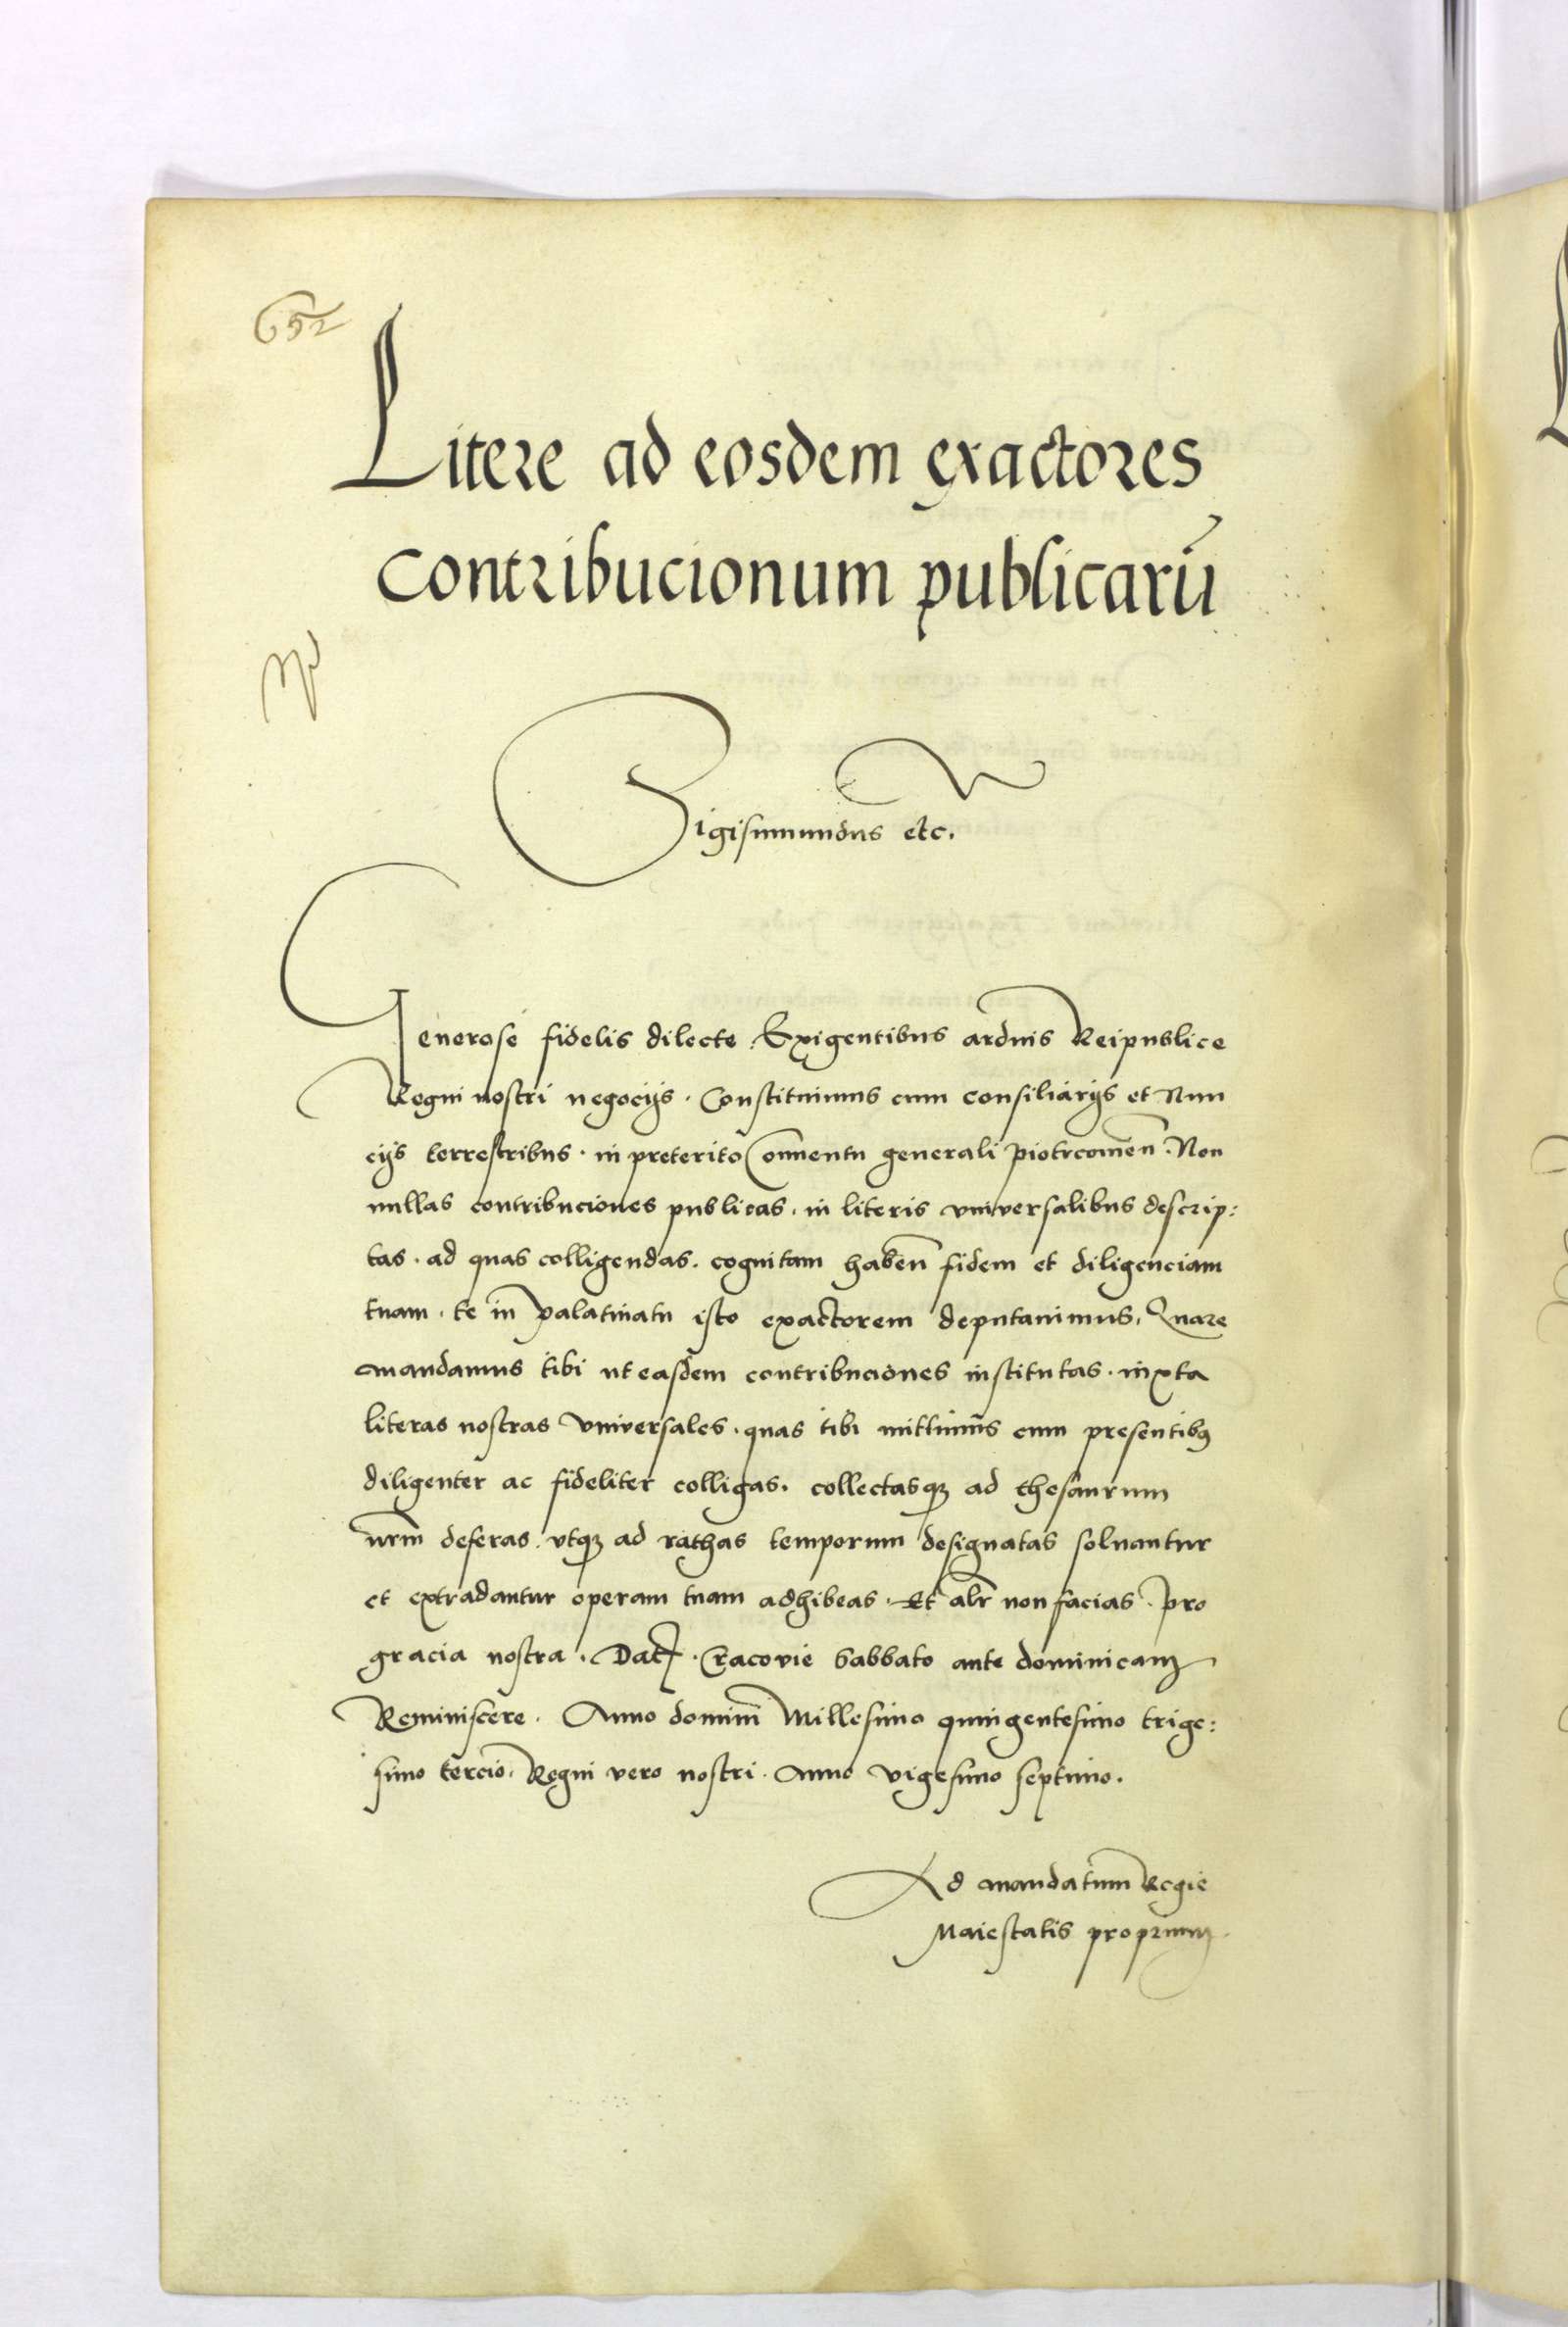 652
Litere ad eosdem exactores
contribucionum publicarū
Sigismundus etc.
Generose fidelis dilecte. Exigentibus arduis Reipublice
Regni nostri negocijs. Constituimus cum consiliarijs et Nun
cijs terrestribus. in preterito Conventu generali piotrcouien̄. Non
nullas contribuciones publicas. in literis universalibus descrip:
tas. ad quas colligendas. cognitam haben̄ fidem et diligenciam
tuam. te in palatinatu isto exactorem deputauimus. Quare
mandamus tibi ut easdem contribuciones institutas. iuxta
literas nostras vniversales. quas tibi mittimus cum presentibꝰ
diligenter ac fideliter colligas. collectasqꝫ ad thesaurum
nrm̄ deferas. vtqꝫ ad rathas temporum designatas soluantur
et extradantur operam tuam adhibeas. Et alr̄ non facias. pro
gracia nostra. Datꝭ. Cracovie Sabbato ante dominicam
Reminiscere. Anno domini Millesimo quingentesimo trige:
simo tercio. Regni vero nostri. Anno vigesimo septimo.
Ad mandatum Regie
Maiestatis proprium.